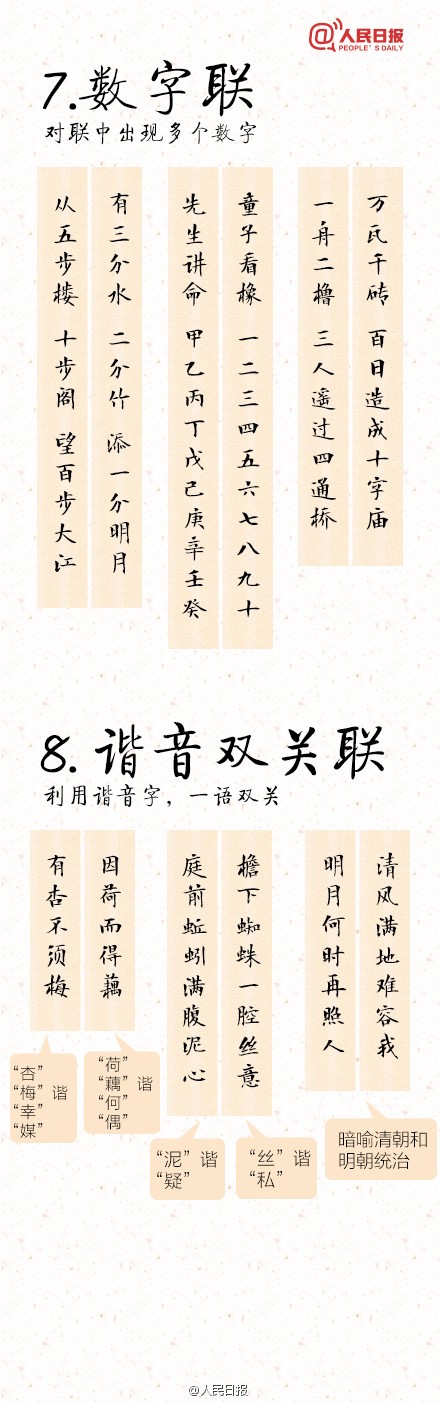 @人民日报
PEOPLE'S DAILY
7.数字联
对联中出现多个数字
万瓦千砖 百日造成十字庙
一舟二橹 三人遥过四通桥
童子看椽 一二三四五六七八九十
先生讲命 甲乙丙丁戊己庚辛壬癸
有三分水 二分竹 添一分明月
从五步楼 十步阁 望百步大江
8.谐音双关联
利用谐音字，一语双关
清风满地难容我
明月何时再照人
檐下蜘蛛一腔丝意
庭前蚯蚓满腹泥心
因荷而得藕
有杏不须梅
暗喻清朝和
明朝统治
“丝”谐
“私”
“泥”谐
“疑”
“荷”
“藕”谐
“何”
“偶”
“杏”
“梅”谐
“幸”
“媒”
@人民日报